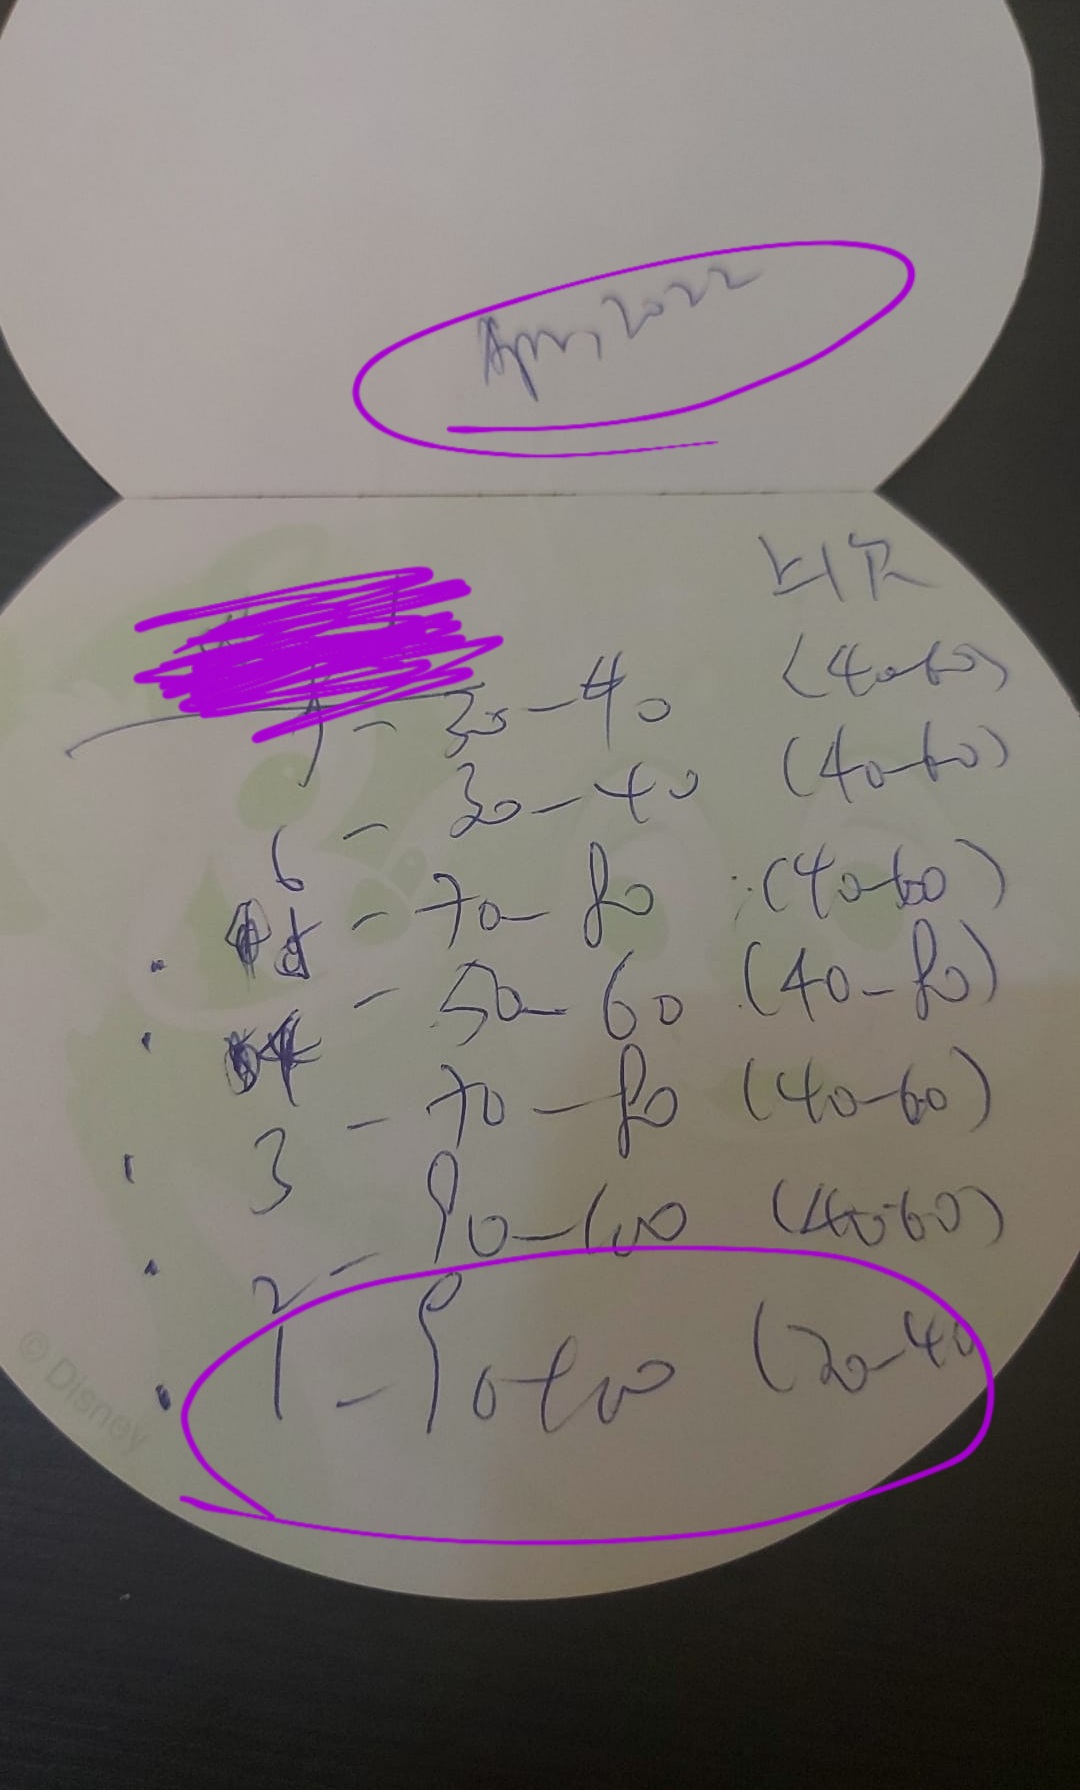 Apr, 2022
7 - 30-40 (40-60)
6 - 30-40 (40-60)
5 - 70-80 (40-60)
4 - 50-60 (40-80)
3 - 70-80 (40-60)
2 - 90-100 (40-60)
1 - 90-100 (20-40
© Disney